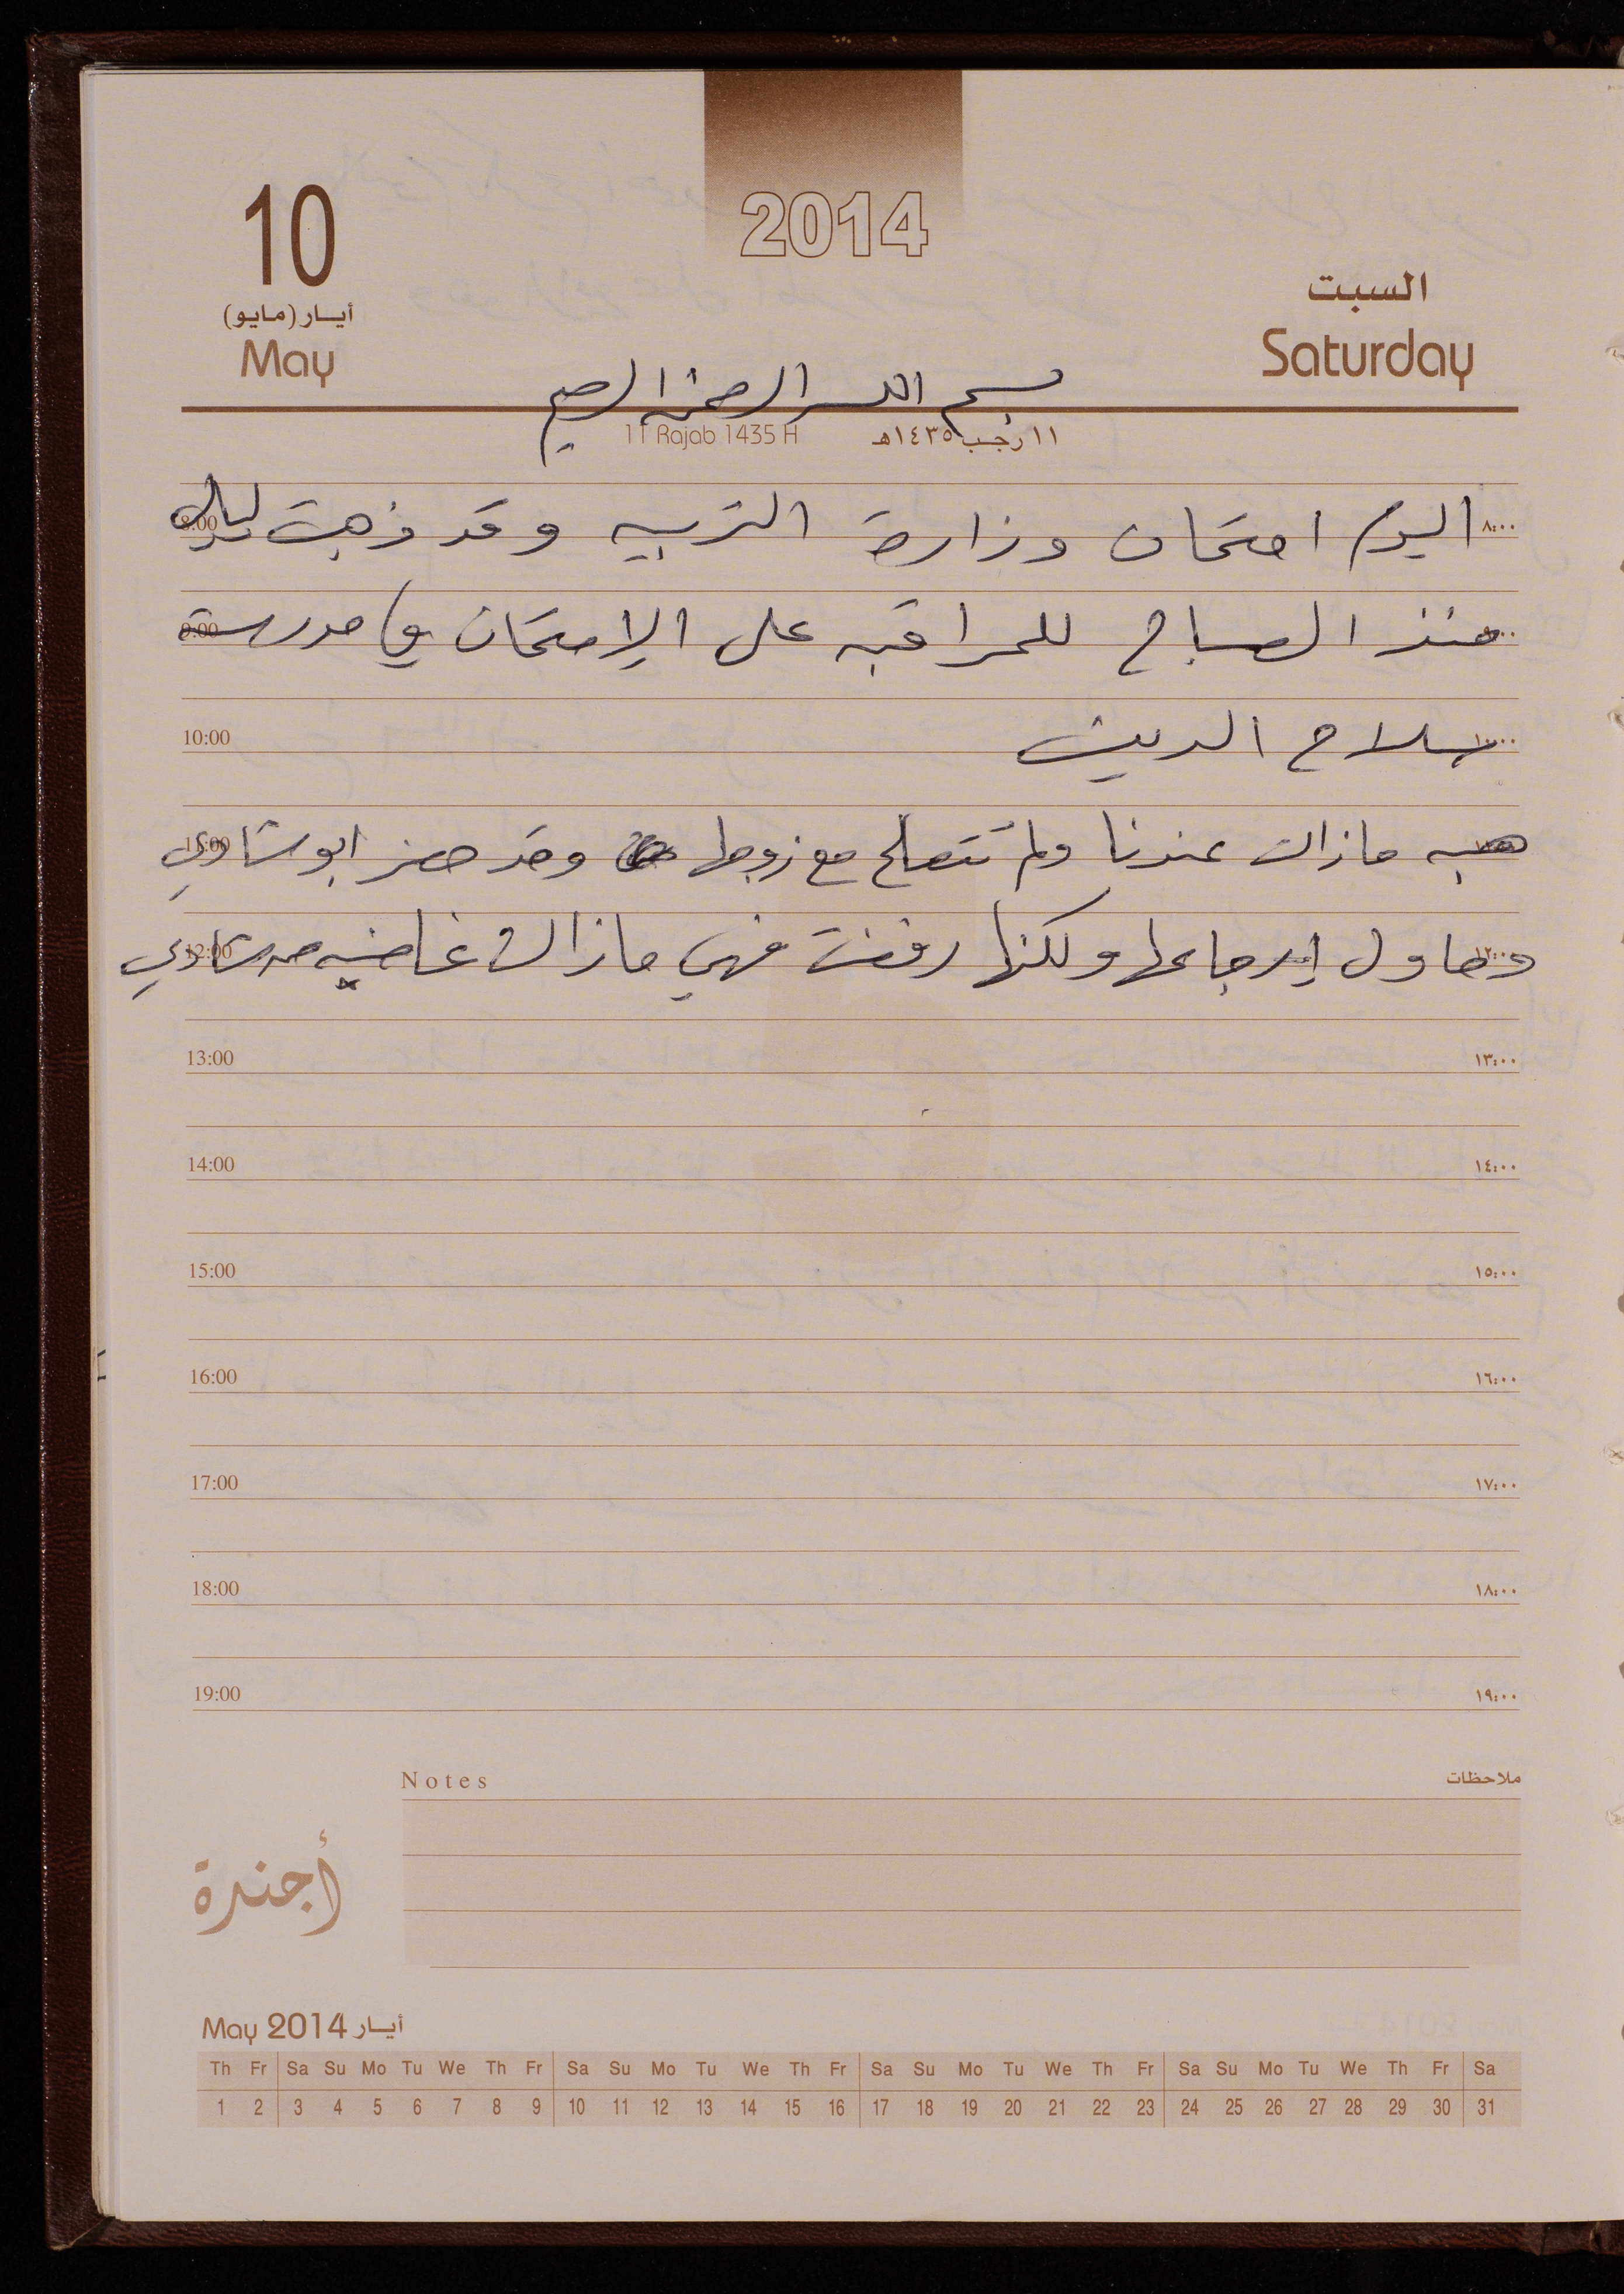 2014
10
أيار (مايو)
May
السبت
Saturday
بسم الله الرحمن الرحيم
11 Rajab 1435 H ١١ رجب ١٤٣٥هـ
8:00 اليوم امتحان وزارة التربيه وقد ذهبت ليال ٨:٠٠
9:00 منذ الصباح للمراقبه على الإمتحان في مدرسة
10:00 صلاح الدين ١٠:٠٠
11:00 هبه مازالت عندنا ولم تتصلح مع زوجها وقد حضر ابو شادي
12:00 وحاول إرجاعها ولكنها رفضت فهي مازالت غاضبه من شادي ١٢:٠٠
13:00 ١٣:٠٠
14:00 ١٤:٠٠
15:00 ١٥:٠٠
16:00 ١٦:٠٠
17:00 ١٧:٠٠
18:00 ١٨:٠٠
19:00 ١٩:٠٠
Notes ملاحظات
أجندة
May 2014 أيار
Th Fr Sa Su Mo Tu We Th Fr Sa Su Mo Tu We Th Fr Sa Su Mo Tu We Th Fr Sa Su Mo Tu We Th Fr Sa
1 2 3 4 5 6 7 8 9 10 11 12 13 14 15 16 17 18 19 20 21 22 23 24 25 26 27 28 29 30 31